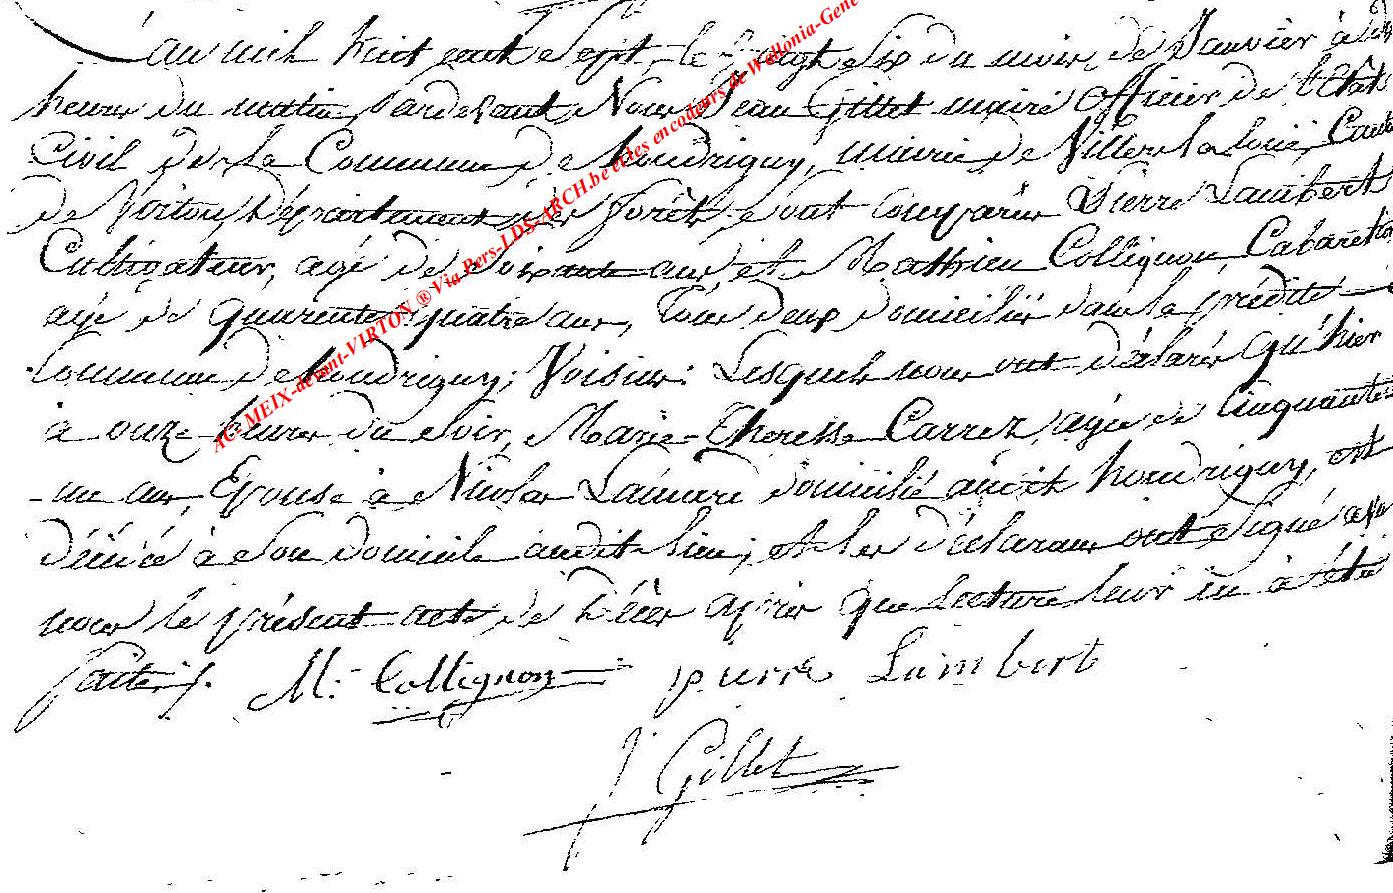 L'an mil huit cent et sept, le vingt six du mois de Janvier à dix
heures du matin pardevant Nous Jean Gillet maire officier de l'Etat
Civil de la Commune de houdrigny, mairie de Villers la loüe, Canton
de Virton, Département des forêts, sont comparus Pierre Lambert
Cultivateur, agé de soixante ans et Mathieu Collignon Cabaretier
agé de quarente quatre ans, tous deux domiciliés dans la prédite
Commune de houdrigny; Voisins: Lesquels nous ont déclarés qu'hier
à onze heures du soir, Marie-Theresse Carrez, agée de Cinquante
une ans, Epouse à Nicolas Lamard domicilié audit houdrigny, est
décédée à son domicile audit lieu; et les déclarans ont signé avec
nous le présent acte de décès après que lecture leur en à été
faites/.
M: Collignon pierre Lambert
J Gillet
AC- MEIX-devant-VIRTON ® Via Pers-LDS-ARCH.be et les encodeurs de Wallonia-Gene